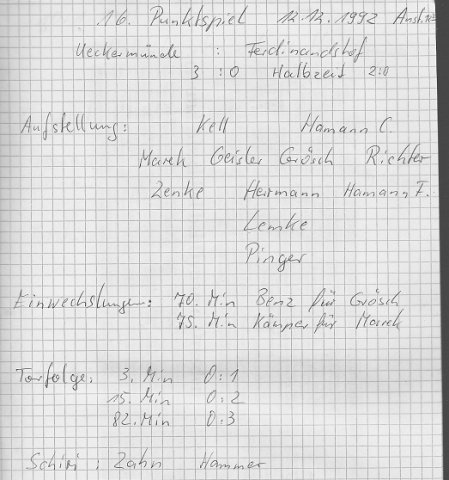 16. Punktspiel 12.12.1992
Ueckermünde : Ferdinandshof
3 : 0 Halbzeit 2:0
Aufstellung: Kell Hamann C.
Marek Geisler Grösch Richter
Zenke Hermann Hamann F.
Lemke
Pinger
Einwechslungen: 70. Min Benz für Grösch
75. Min Kämper für Marek
Torfolge: 3. Min 0:1
15. Min 0:2
82. Min 0:3
Schiri: Zahn Hammer